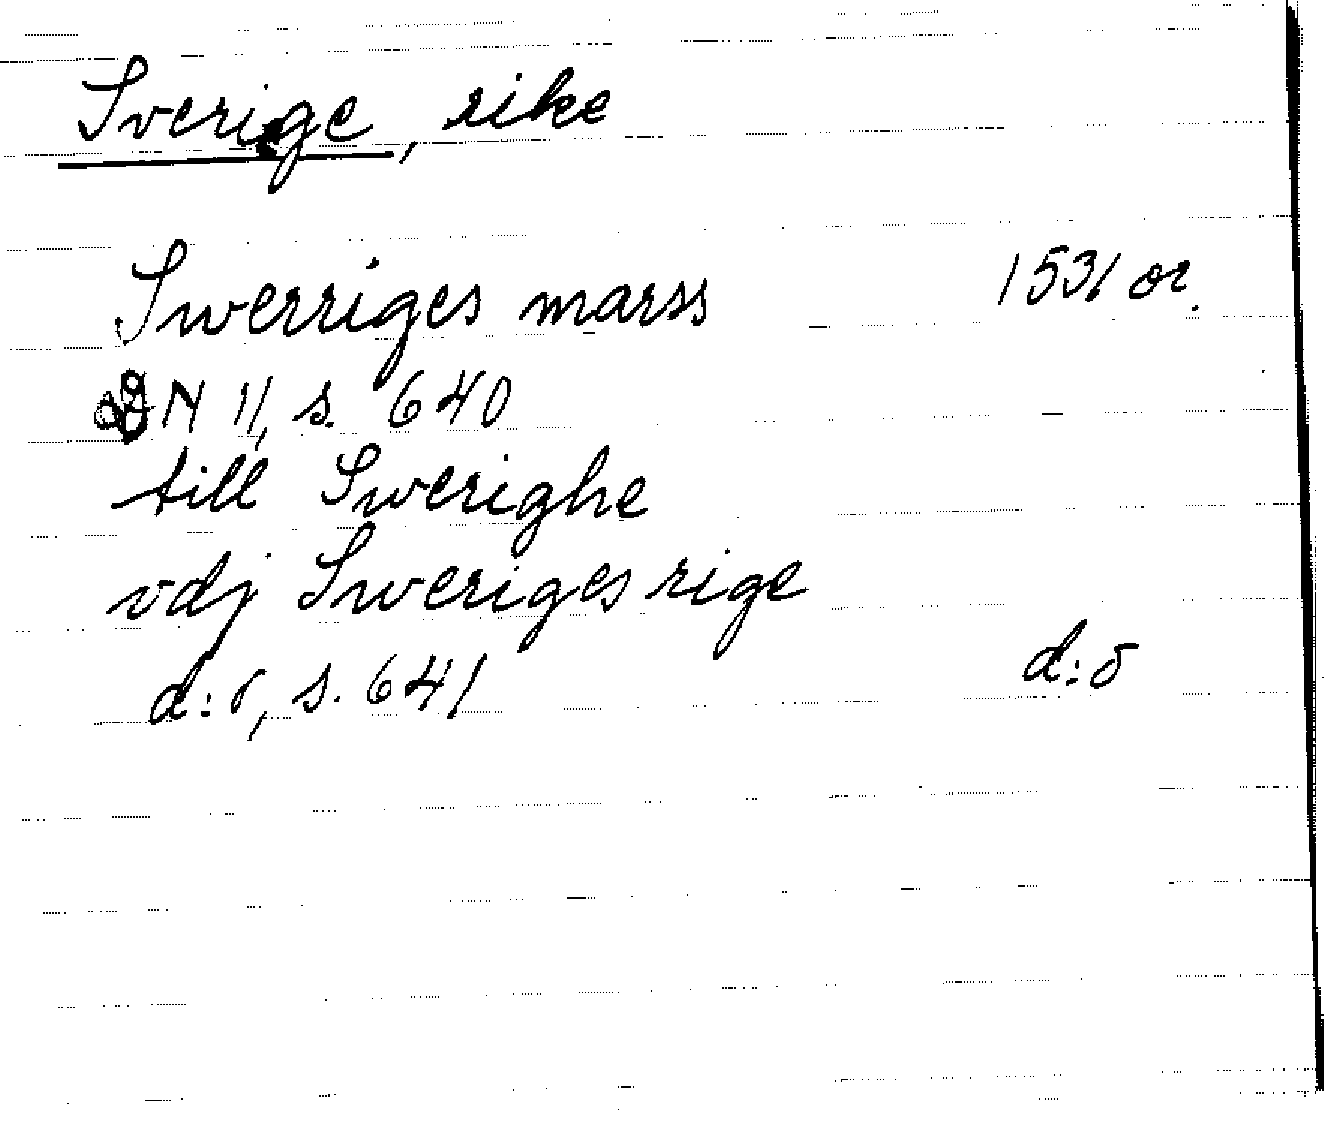 Sverige, rike
Swerriges marss 1531 or.
DN 11, s. 640
till Swerighe
vdj Sweriges rige
d:o, s. 641 d:o